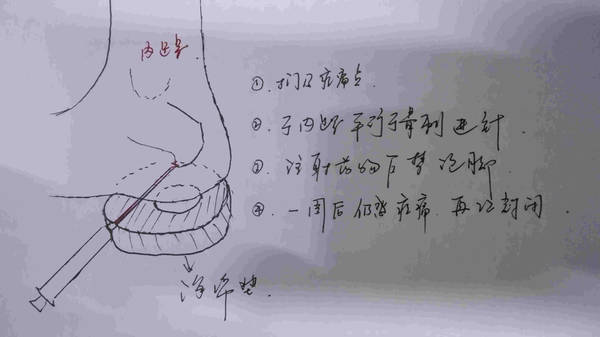 内踝
① 扪及疼痛点
② 于内侧平行于骨刺进针.
③ 注射药物后
④ 一周后仍然疼痛 再次封闭.
海绵垫.